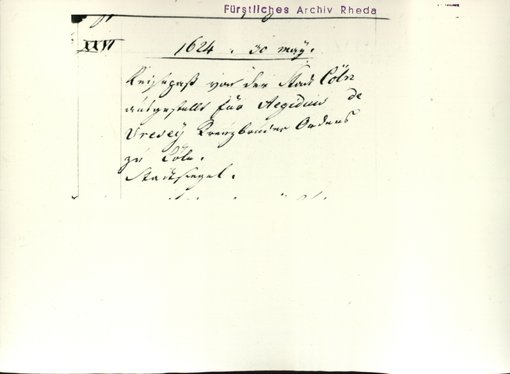 Fürstliches Archiv Rheda
XXVI
1624. 30 may.
Reisepaß von der Stadt Cöln
ausgestellt für Aegidius de
Vresey Kreuzbrüder Ordens
zu Cöln.
Stadtsiegel.